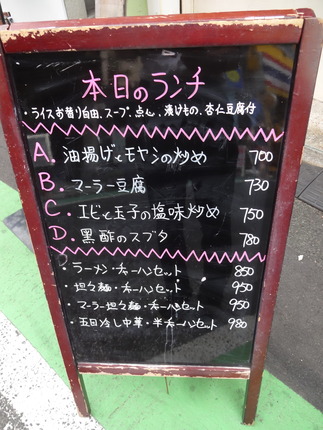 本日のランチ
・ライスお替り自由、スープ、点心、漬けもの、杏仁豆腐付
A. 油揚げとモヤシの炒め 700
B. マーラー豆腐 730
C. エビと玉子の塩味炒め 750
D. 黒酢のスブタ 780
・ラーメン・チャーハンセット 850
・担々麺・チャーハンセット 950
・マーラー担々麺・チャーハンセット 950
・五目冷し中華・半チャーハンセット 980